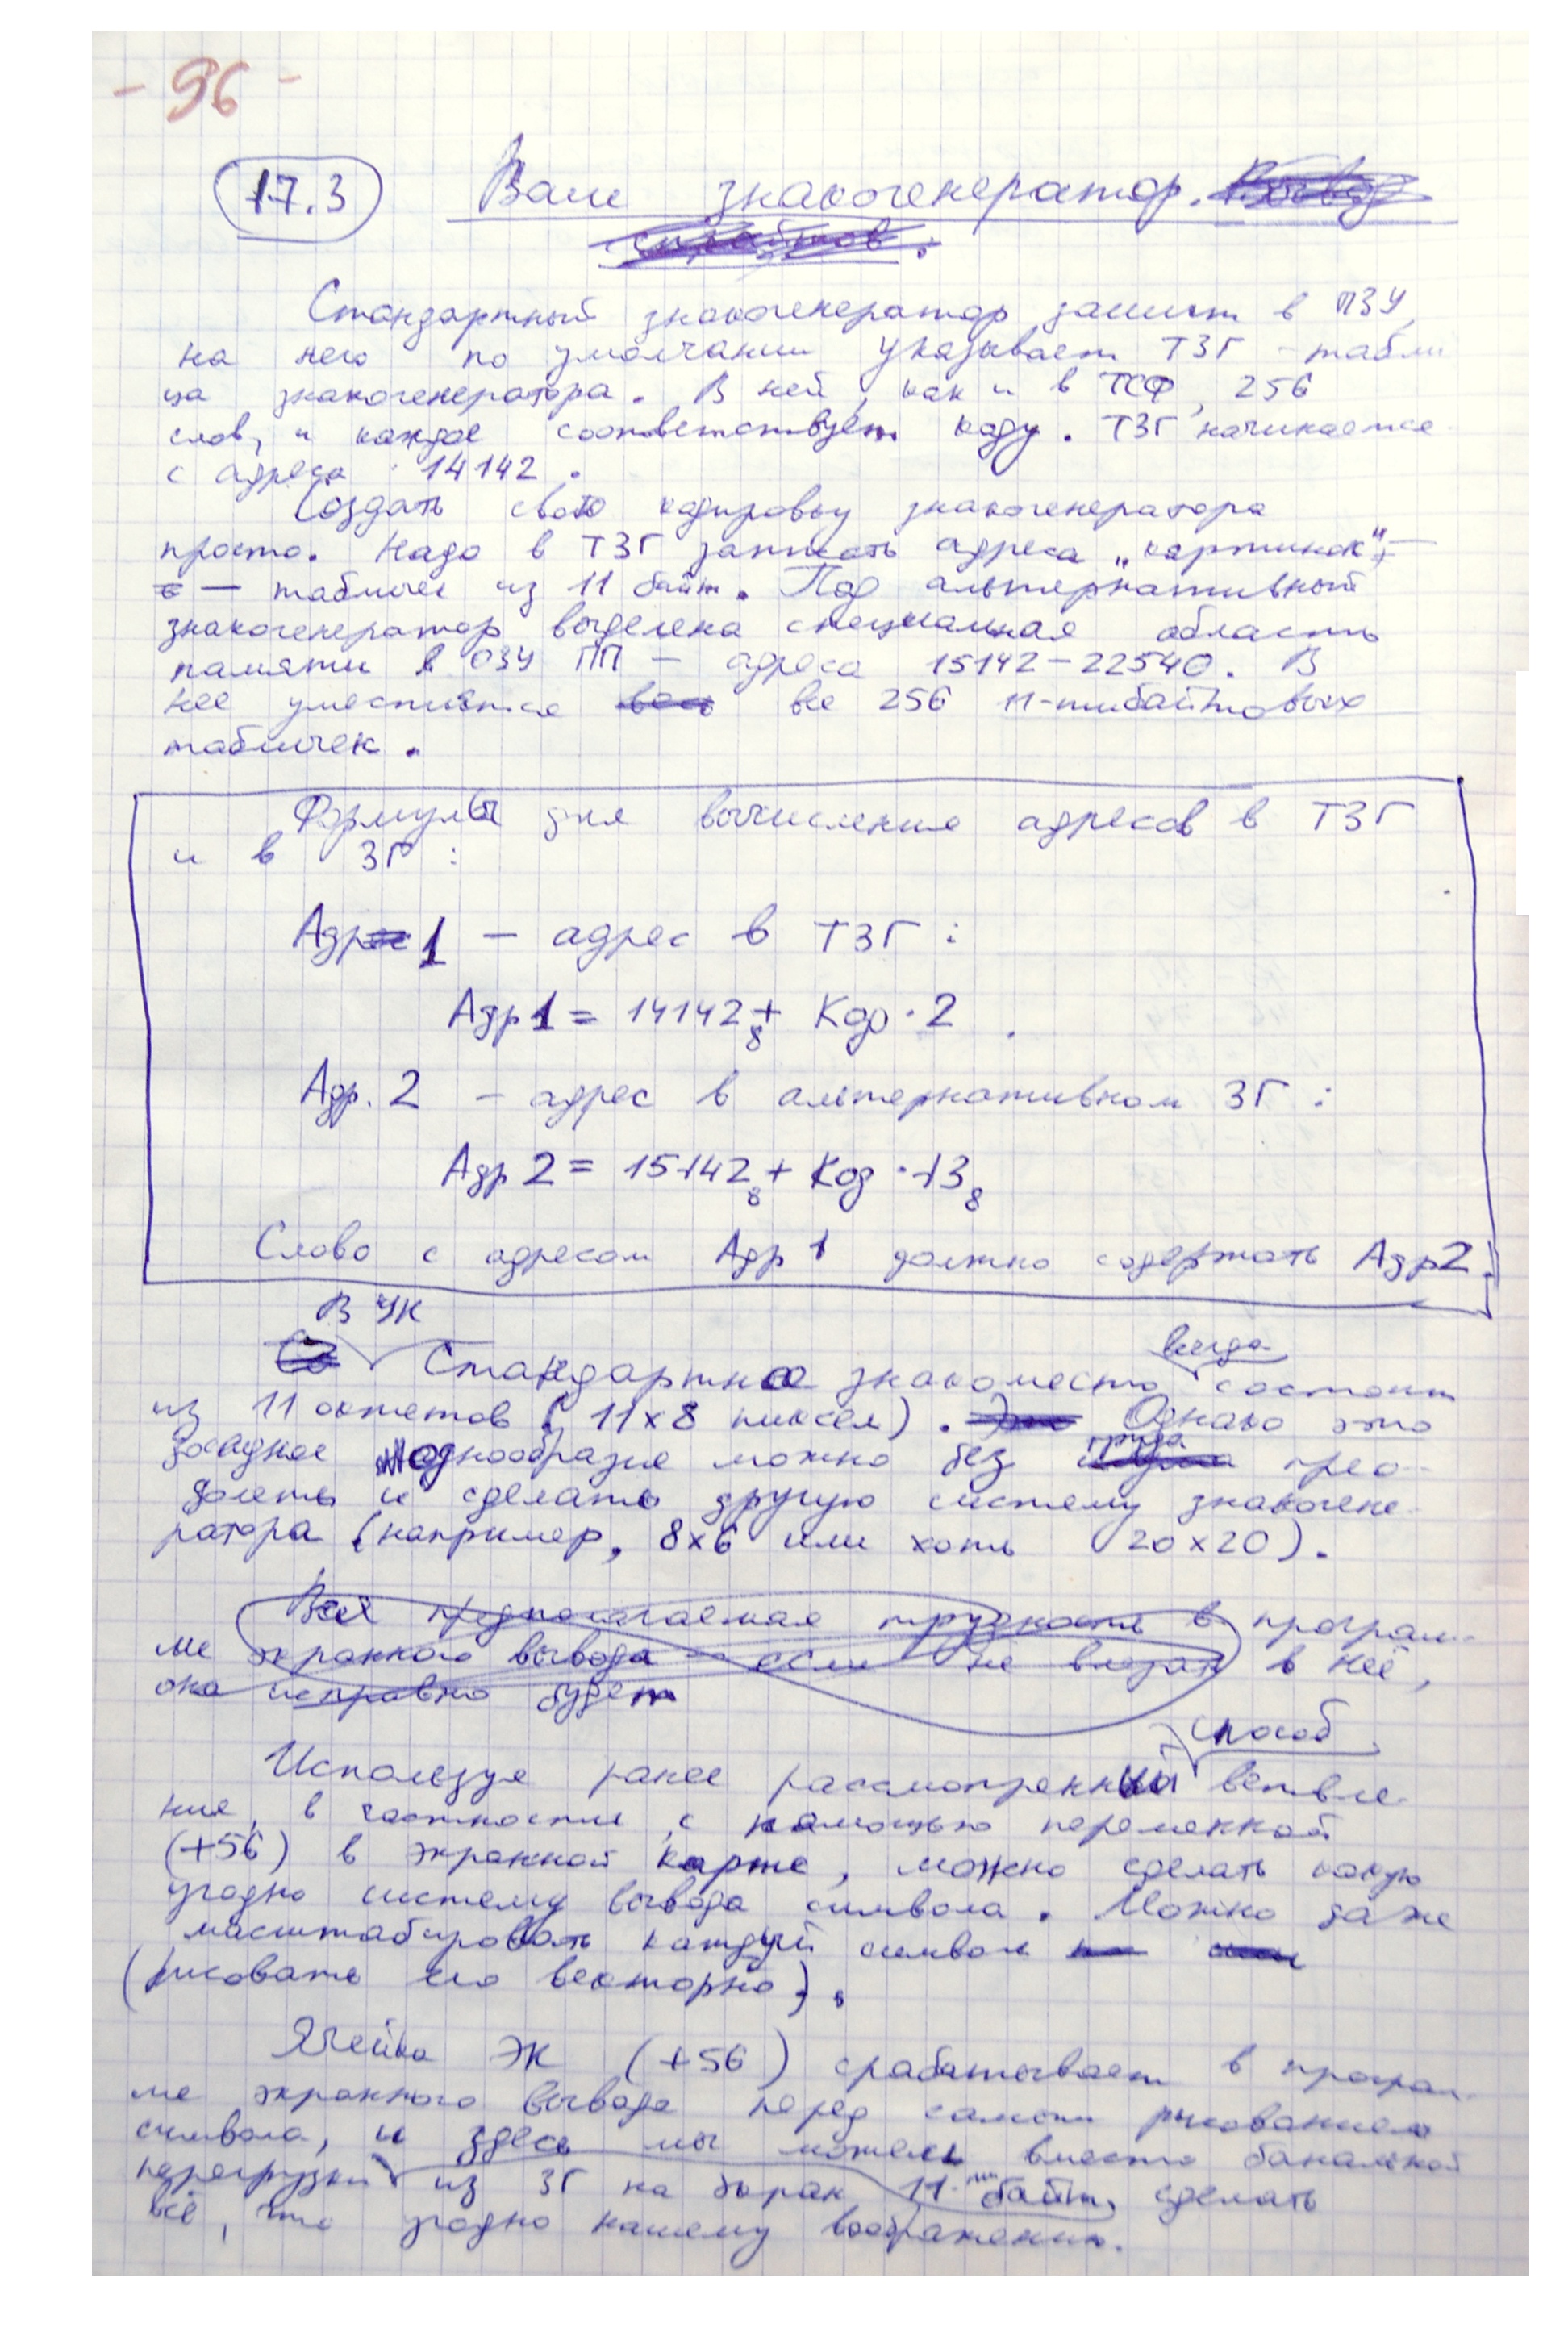 - 96 -
17.3 Ваш знакогенератор. Вывод
спрайтов.
Стандартный знакогенератор зашит в ПЗУ,
на него по умолчанию указывает ТЗГ - табли
ца знакогенератора. В ней, как и в ТСФ, 256
слов, и каждое соответствует коду. ТЗГ начинается
с адреса 14142.
Создать свою кодировку знакогенератора
просто. Надо в ТЗГ записать адреса „картинок"
— табличек из 11 байт. Под альтернативный
знакогенератор выделена специальная область
памяти в ОЗУ ПП — адреса 15142-22540. В
нее уместятся весь все 256 11-тибайтовых
табличек.
Формулы для вычисления адресов в ТЗГ
и в ЗГ:
Адр 1 - адрес в ТЗГ:
Адр1 = 14142₈ + Код · 2.
Адр. 2 - адрес в альтернативном ЗГ:
Адр 2 = 15142₈ + Код · 13₈
Слово с адресом Адр 1 должно содержать Адр2!
В УК
всегда
Стандартное знакоместо состоит
из 11 октетов (11х8 пиксел). Это Однако это
труда
досадное однообразие можно без прео-
долеть и сделать другую систему знакогене-
ратора (например, 8х6 или хоть 20х20).
Вся предполагаемая трудность в програм-
ме экранного вывода - если не влезать в неё,
она исправно будет
способ
Используя ранее рассмотренный ветвле-
ния, в частности, с помощью переменной
(+56) в экранной карте, можно сделать какую
угодно систему вывода символа. Можно даже
масштабировать каждый символ
(рисовать его векторно).
Ячейка ЭК (+56) срабатывает в програм-
ме экранного вывода перед самым рисованием
символа, и здесь мы можем вместо банальной
перегрузки из ЗГ на экран 11-ти байт, сделать
всё, что угодно нашему воображению.